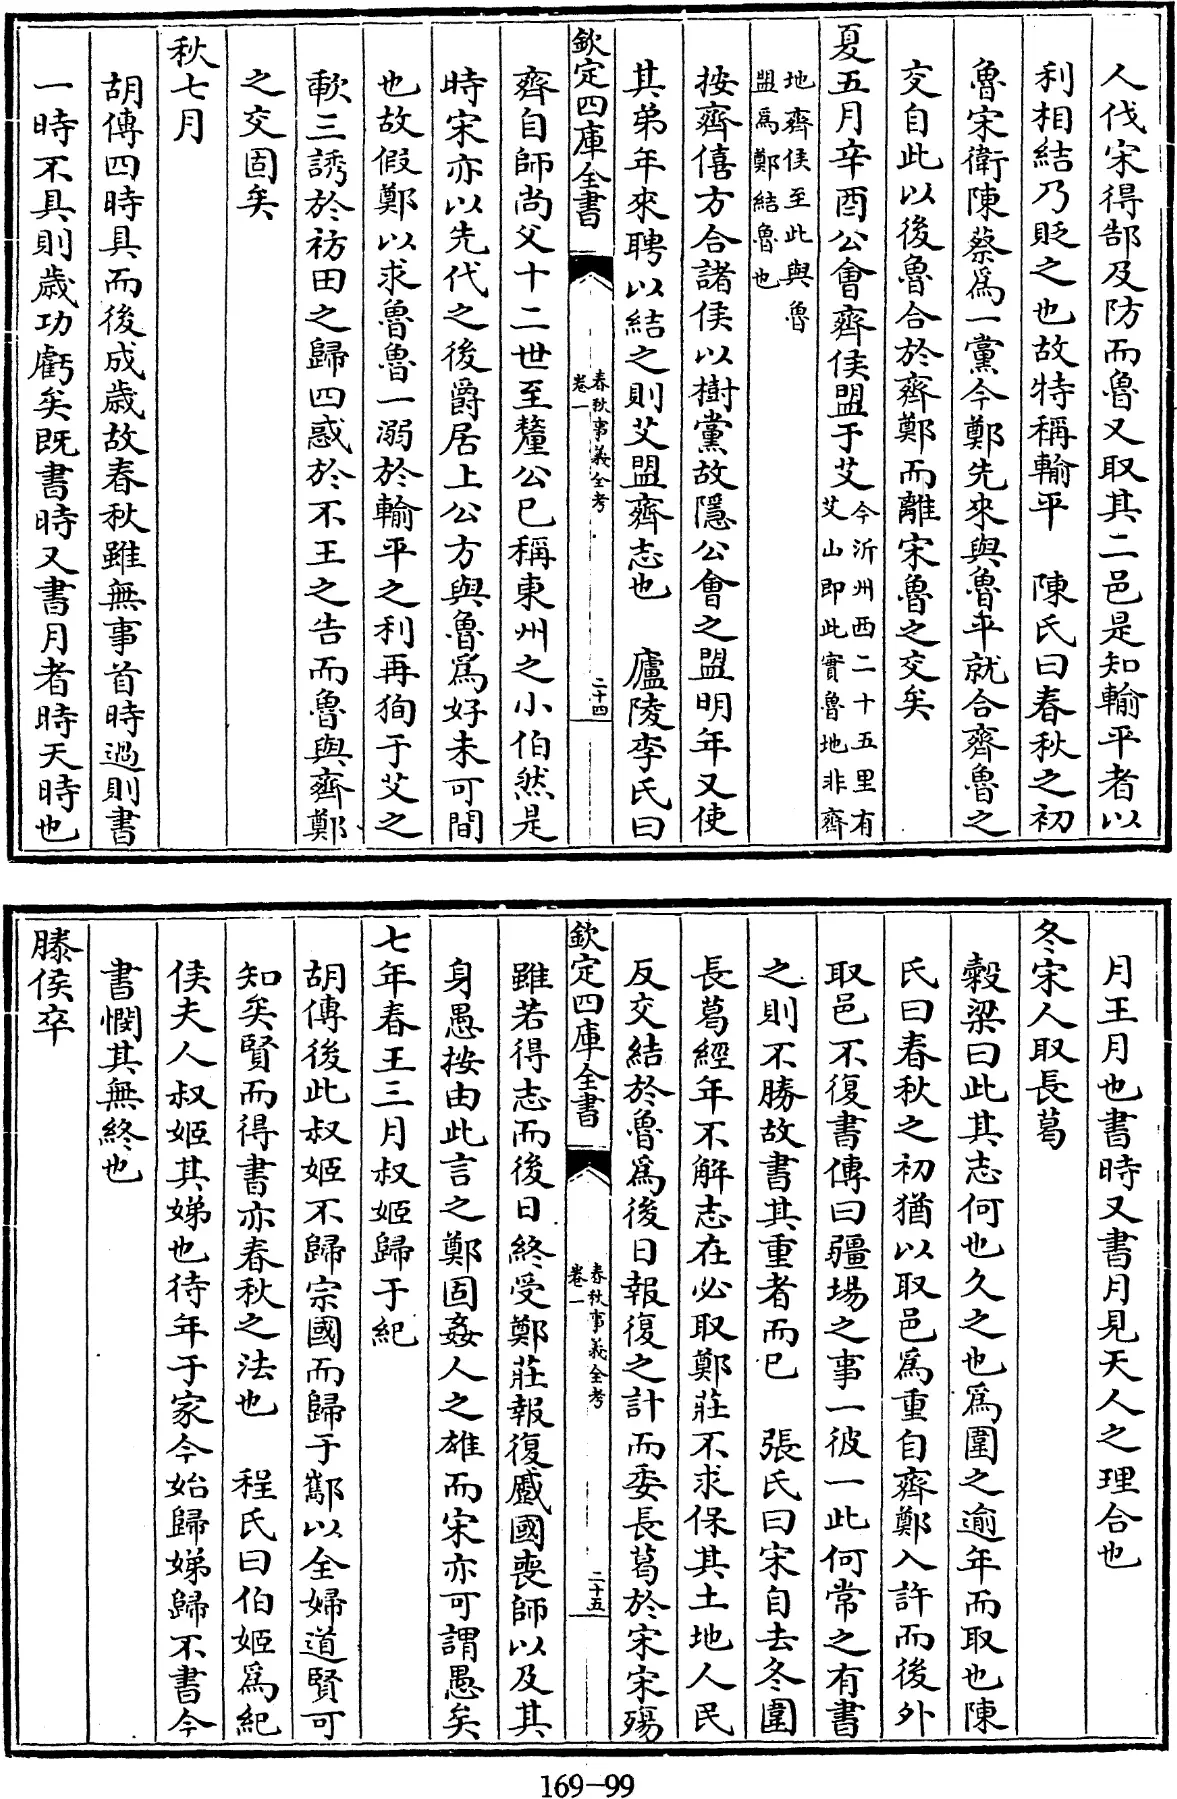 人伐宋得郜及防而魯又取其二邑是知輸平者以
利相結乃貶之也故特稱輸平　陳氏曰春秋之初
魯宋衛陳蔡為一黨今鄭先來與魯平就合齊魯之
交自此以後魯合於齊鄭而離宋魯之交矣
夏五月辛酉公會齊侯盟于艾今沂州西二十五里有
艾山即此實魯地非齊
地齊侯至此與魯
盟為鄭結魯也
按齊僖方合諸侯以樹黨故隱公會之盟明年又使
其弟年來聘以結之則艾盟齊志也　廬陵李氏曰
欽定四庫全書
春秋事義全考
卷一
二十四
齊自師尚父十二世至釐公已稱東州之小伯然是
時宋亦以先代之後爵居上公方與魯為好未可間
也故假鄭以求魯魯一溺於輸平之利再狥于艾之
歃三誘於祊田之歸四惑於不王之告而魯與齊鄭
之交固矣
秋七月
胡傳四時具而後成歲故春秋雖無事首時過則書
一時不具則歲功虧矣既書時又書月者時天時也
月王月也書時又書月見天人之理合也
冬宋人取長葛
穀梁曰此其志何也久之也為圍之逾年而取也陳
氏曰春秋之初猶以取邑為重自齊鄭入許而後外
取邑不復書傳曰疆場之事一彼一此何常之有書
之則不勝故書其重者而已　張氏曰宋自去冬圍
長葛經年不解志在必取鄭莊不求保其土地人民
反交結於魯為後日報復之計而委長葛於宋宋殤
欽定四庫全書
春秋事義全考
卷一
二十五
雖若得志而後日終受鄭莊報復蹙國喪師以及其
身愚按由此言之鄭固姦人之雄而宋亦可謂愚矣
七年春王三月叔姬歸于紀
胡傳後此叔姬不歸宗國而歸于酅以全婦道賢可
知矣賢而得書亦春秋之法也　程氏曰伯姬為紀
侯夫人叔姬其娣也待年于家今始歸娣歸不書今
書憫其無終也
滕侯卒
169-99